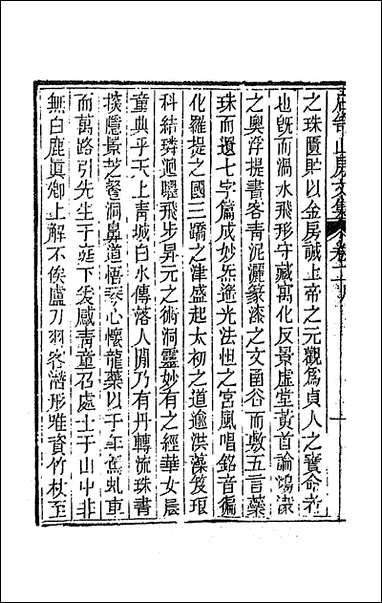 石笥山房文集　卷二
之珠匱貯以金房誠上帝之元觀爲貞人之寶命者
也旣而渦水飛形守藏寓化反景虛堂黃首論鴻濛
之奧浮提書客靑泥灑篆漆之文函谷而敷五言蘂
珠而還七字篇成妙炁遙光法怛之宮風唱銘音徧
化羅提之國三蹻之津盛起太初之道逾洪藻笈琅
科結璘迴驪飛步昇元之術洞靈妙有之經華女晨
童典乎天上靑城白水傳落人閒乃有丹轉流珠書
探隱景芝馨洞鼻道悟琴心懷龍藥以千年駕虬車
而萬路引先生于庭下爰感靑童召處士于山中非
無白鹿眞卿上解不俟盧刀羽客潛形雅資竹杖至